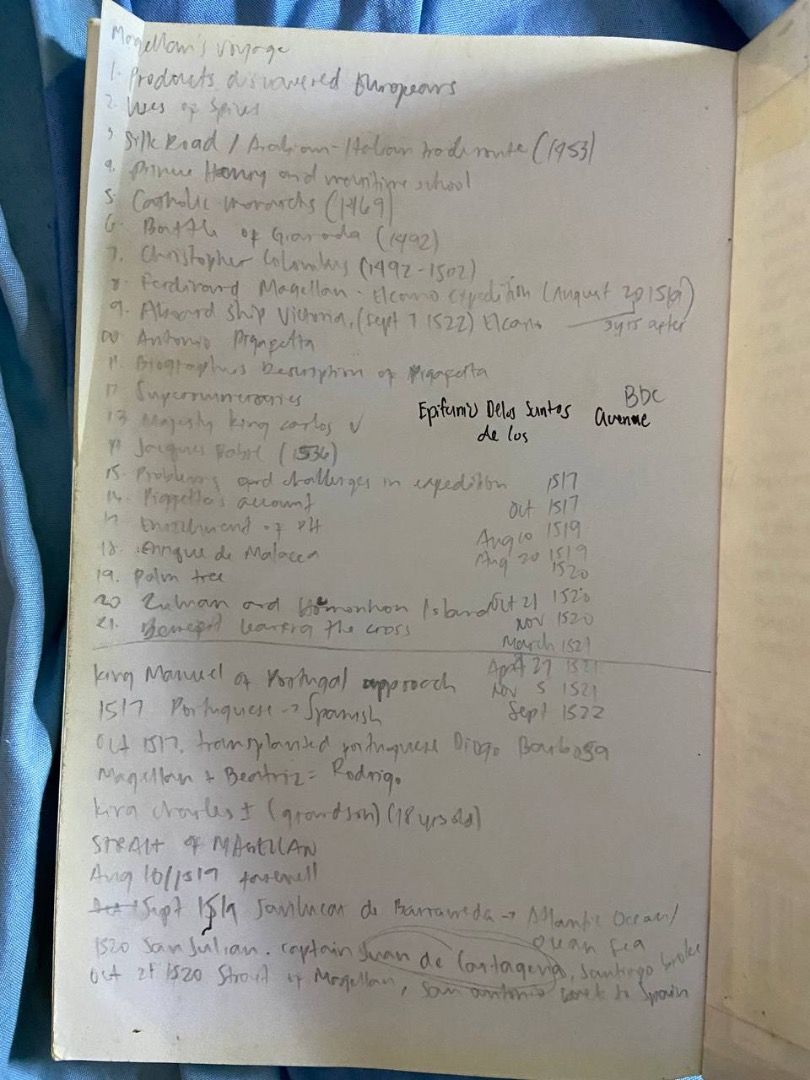 Magellan's voyage
1. Products discovered Europeans
2. Uses of Spices
3. Silk Road / Arabian-Italian trade route (1453)
4. Prince Henry and maritime school
5. Catholic monarchs (1469)
6. Battle of Granada (1492)
7. Christopher Columbus (1492-1502)
8. Ferdinand Magellan - Elcano expedition (August 20 1519)
9. Aboard ship Victoria, (Sept 7 1522) Elcano 3 yrs after
10 Antonio Pigafetta
11. Biographers Description of Pigafetta
12 Supernumeraries
13 Majesty king Carlos V
Epifanio Delos Santos Avenue
de los
BDC
14 Jacques (1536)
15. Problems and challenges in expedition
16. Pigafetta's account
17 of PH
18. Enrique de Malacca
19. Palm tree
20 Zuluan and Homonhon Island
21. bearing the cross
1517
Oct 1517
Aug 10 1519
Aug 20 1519
1520
Oct 21 1520
Nov 1520
March 1521
April 27 1521
Nov 5 1521
Sept 1522
King Manuel of Portugal approach
1517 Portuguese → Spanish
Oct 1517, transplanted portuguese Diogo Barbosa
Magellan + Beatriz = Rodrigo
King Charles I (grandson) (18 yrs old)
STRAIT OF MAGELLAN
Aug 10/1519 farewell
Sept 1519 Sanlucar de Barrameda → Atlantic Ocean/
Ocean Sea
1520 San Julian. captain Juan de Cartagena, Santiago broke
Oct 21 1520 Strait of Magellan, San antonio went to Spain